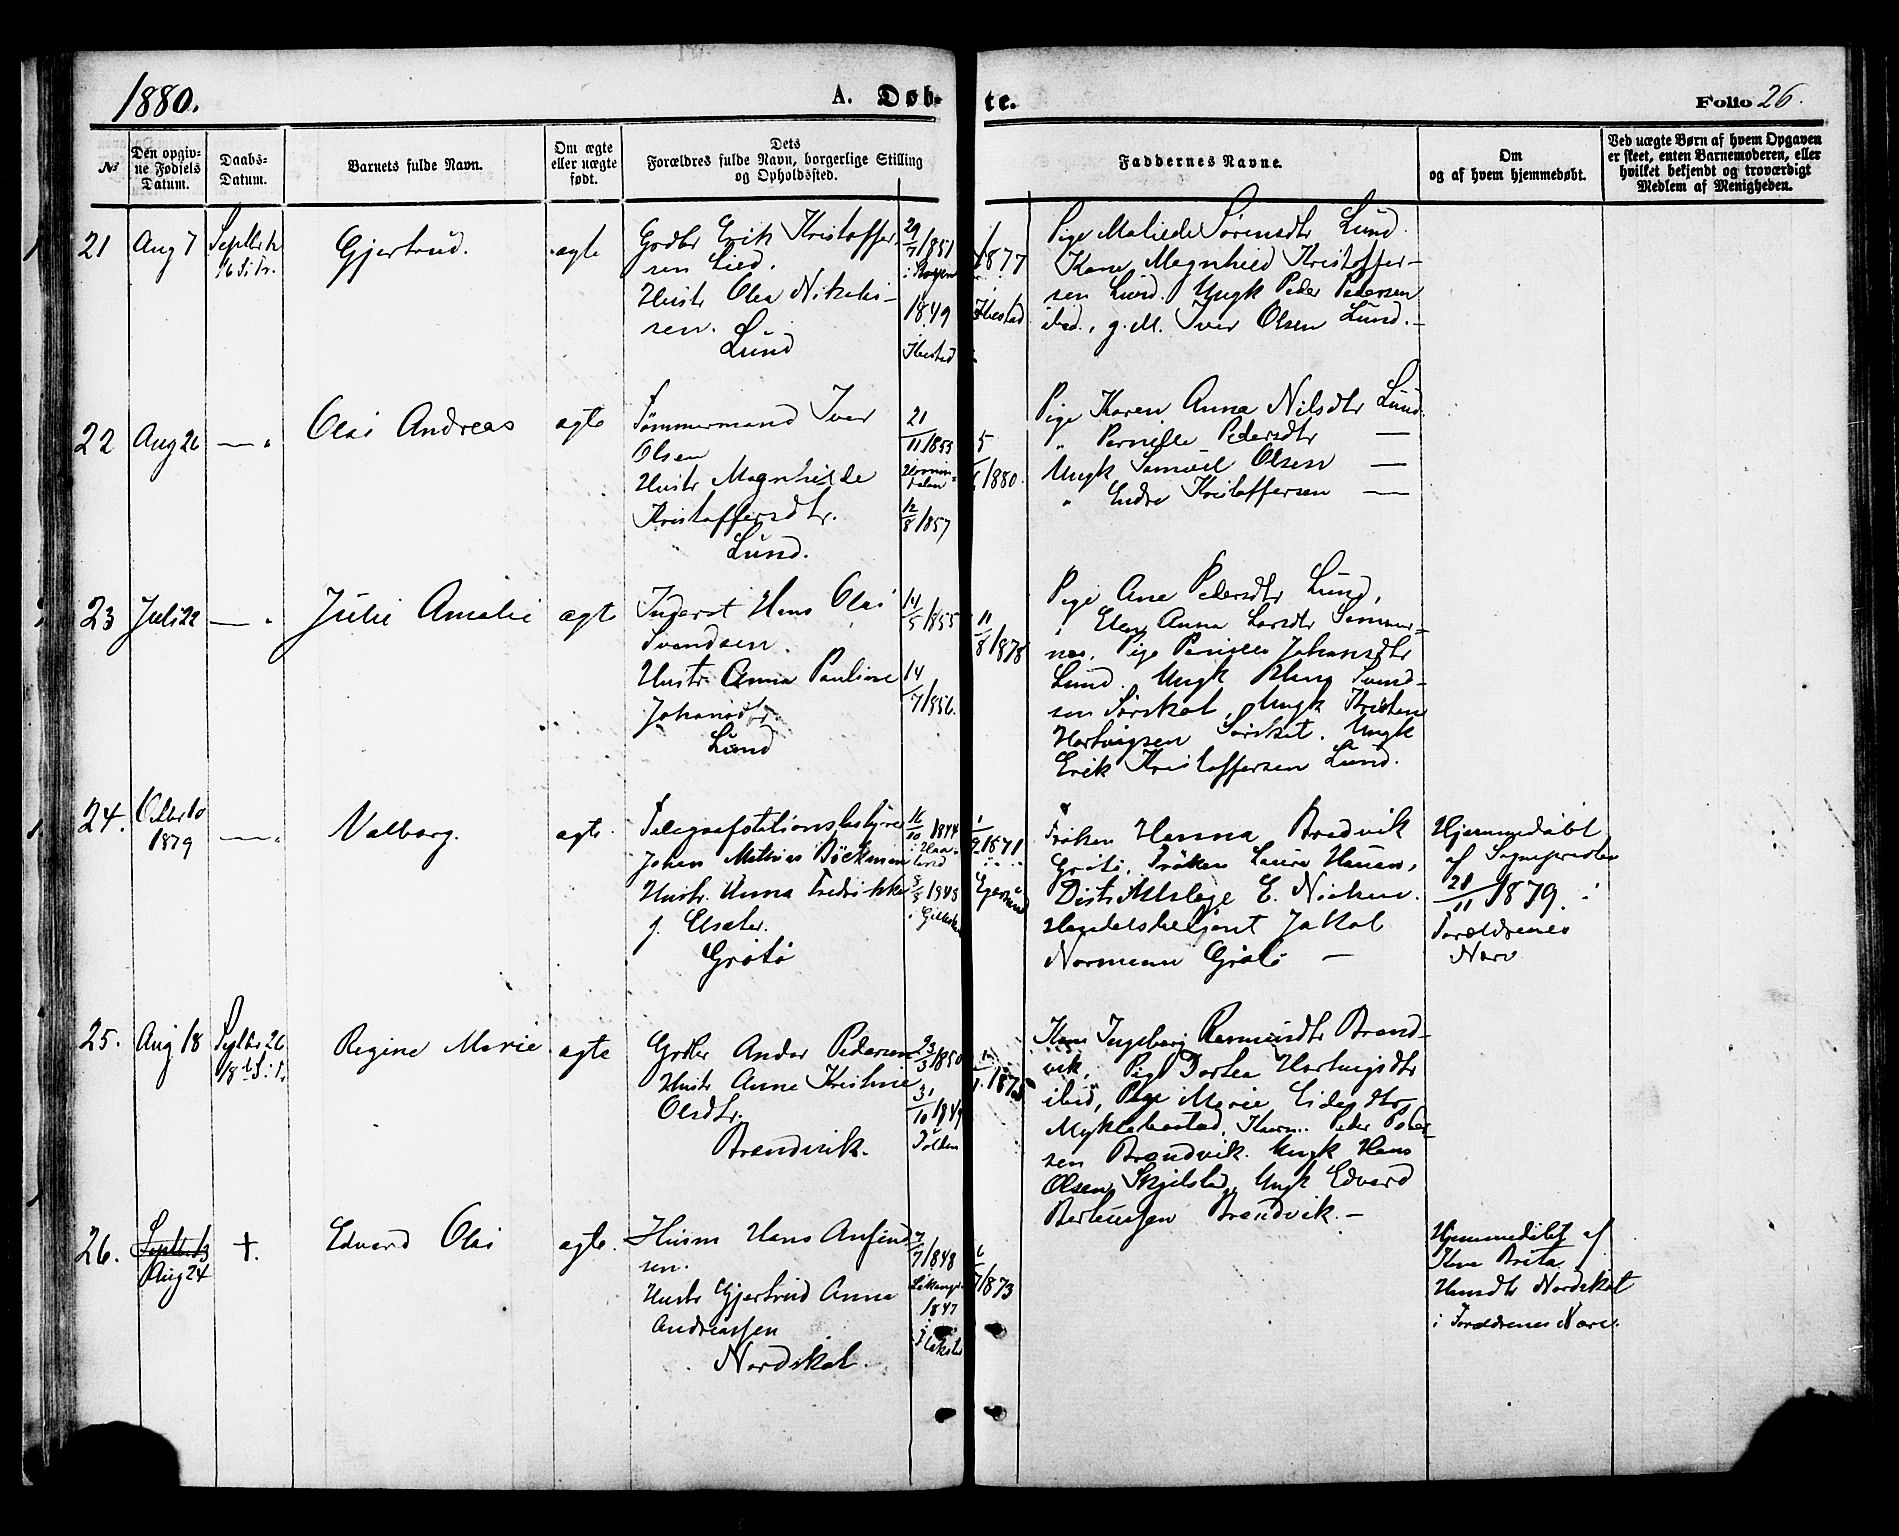 1880.
A. Døb-
te.
Folio 26.
№
Den opgiv-
ne Fødsels
Datum.
Daabs-
Datum.
Barnets fulde Navn.
Om ægte
eller uægte
født.
Dets
Forældres fulde Navn, borgerlige Stilling
og Opholdssted.
Faddernes Navne.
Om
og af hvem hjemmedøbt.
Ved uægte Børn af hvem Opgaven
er skeet, enten Barnemoderen, eller
hvilket bekjendt og troværdigt
Medlem af Menigheden.
21
Aug 7
Septbr 12
16 S. i Tr.
Gjertrud.
ægte
Gрdbr Erik Kristoffer-
sen
Hustr Olea Nikolai-
sen.
Lund
29/7 1851
1849
Ibestad
1877
Ibestad
Pige Maliede Sørensdtr Lund.
Kone Magnhild Kristoffer-
sen Lund. Ungk Peder Pedersen
ibid., g. M. Iver Olsen Lund.-
22
Aug 26
— "
Olai Andreas
ægte
Tømmermand Iver
Olsen
Hustr Magnhilde
Kristoffersdtr.
Lund.
21/11 1853
12/8 1857
5
1880.
Pige Karen Anna Nilsdtr Lund.
" Pernille Pedersdtr —
Ungk Samuel Olsen —
" Endre Kristoffersen —
23
Juli 22
— "
Julie Amalie
ægte
Inderst Hans Olai
Svendsen.
Hustr Anna Pauline
Johansdtr.
Lund
14/5 1855
14/7 1856.
11/8 1878
Pige Ane Pedersdtr Lund,
" Elen Anna Larsdtr Sommer-
nes. Pige Pernille Johansdtr
Lund. Ungk Svend-
sen Sørskot, Ungk Kristen
Hartvigsen Sørskot. Ungk
Erik Kristoffersen Lund.
24.
Octbr 10
1879
— "
Valborg.
ægte.
Telegrafstationsbestyrer
Johan Mathias Böckman
Hustr. Anna Fredrikke
f. Elsater.
Grøtø
16/10 1844
1848
1/9 1871
Egersund
Frøken Hanna Bradvik
Grøtø, Frøken Laura
Distriktslæge E. Nielsen.
Handelsbetjent Jakob
Normann Grøtø —
Hjemmedøbt
af Sognepresten
21/11 1879.
Forældrenes
Nærv
25.
Aug 18
Septbr 26
18de S. i Tr
Regine Marie
ægte
Gрdbr Andor Pedersen
Hustr Anne Kristine
Olsdtr.
Brandvik.
23/3 1850
31/10 1849
1875
Kone Ingeborg Rasmusdtr Brand-
vik, Pige Dortea Hartvigsdtr
ibid, Pige Marie
Myklebostad, Peder Peder-
sen Brandvik. Ungk Hans
Olsen Skjelstad, Ungk Edvard
Berteussen Brandvik.—
26.
Aug 24
+.
Edvard Olai
ægte.
Husm Hans Anfind-
sen.
Hustr Gjertrud Anna
Andreassen
Nordskot.
7/7 1848
1847
1873
Hjemmedøbt af
Kone Brita
Hansdtr Nordskot
i Forældrenes Nærv.